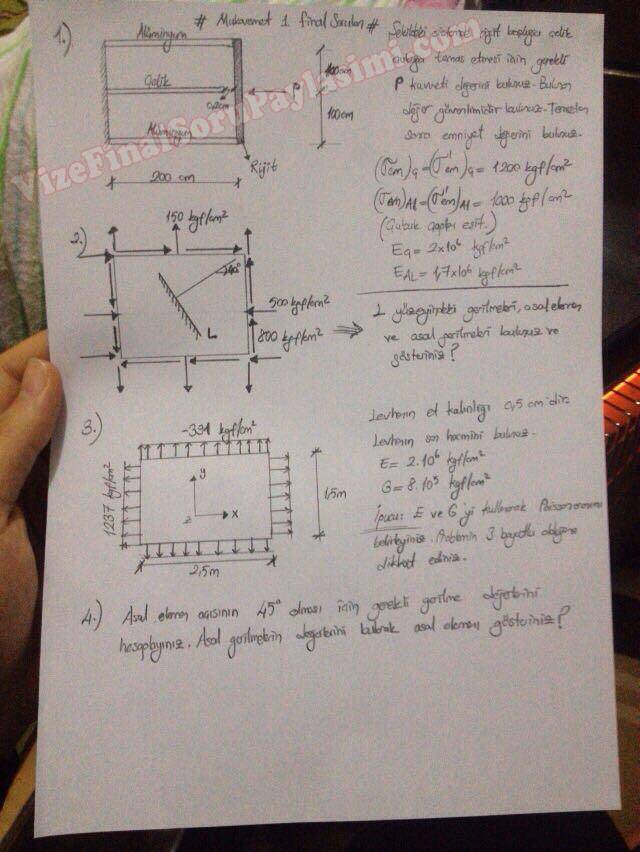 # Mukavemet 1 final Soruları #
VizeFinalSoruPaylasimi.com
1.)
Alüminyum
Çelik
Alüminyum
0,2cm
P
100cm
100cm
Rijit
200 cm
Şekildeki sistemde rijit başlığın çelik
çubuğa temas etmesi için gerekli
P kuvveti değerini bulunuz. Bulunan
değer güvenlimidir bulunuz. Temastan
sonra emniyet değerini bulunuz.
(σem)ç = (σ'em)ç = 1200 kgf/cm²
(σem)Al = (σ'em)Al = 1000 kgf/cm²
(Çubuk çapları eşit.)
Eç = 2x10⁶ kgf/cm²
EAL = 1,7x10⁶ kgf/cm²
2.)
150 kgf/cm²
40°
L
500 kgf/cm²
800 kgf/cm²
L yüzeyindeki gerilmeleri, asal eleman
ve asal gerilmeleri bulunuz ve
gösteriniz?
3.)
-331 kgf/cm²
1237 kgf/cm²
y
z
x
1,5m
2,5m
Levhanın et kalınlığı 0,5 cm dir.
Levhanın son hacmini bulunuz.
E= 2.10⁶ kgf/cm²
G= 8.10⁵ kgf/cm²
İpucu: E ve G yi kullanarak Poisson oranını
belirleyiniz. Problemin 3 boyutlu olduğuna
dikkat ediniz.
4.) Asal eleman açısının 45° olması için gerekli gerilme değerlerini
hesaplayınız. Asal gerilmelerin değerlerini bularak asal elemanı gösteriniz?